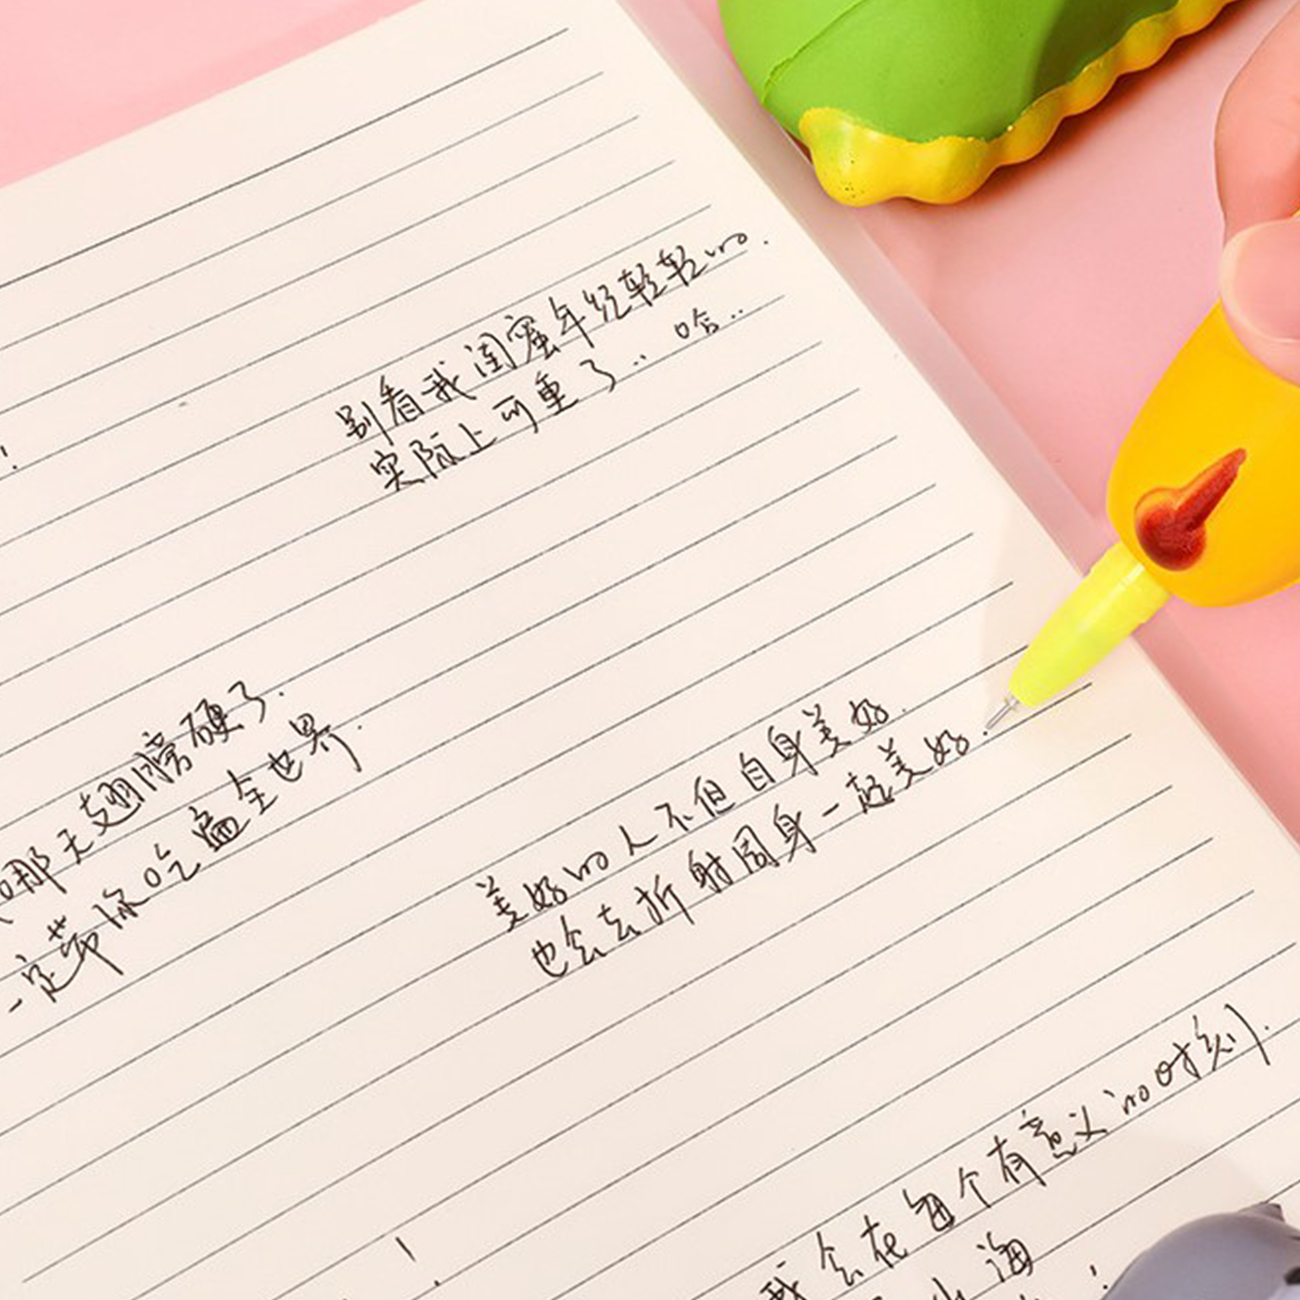 别看我闺蜜年纪轻轻的.
实际上可重了.. 哈..
那天翅膀硬了.
一定带你吃遍全世界.
美好的人不但自身美好.
也会去折射周身一起美好.
我会在每个有意义的时刻.
山海